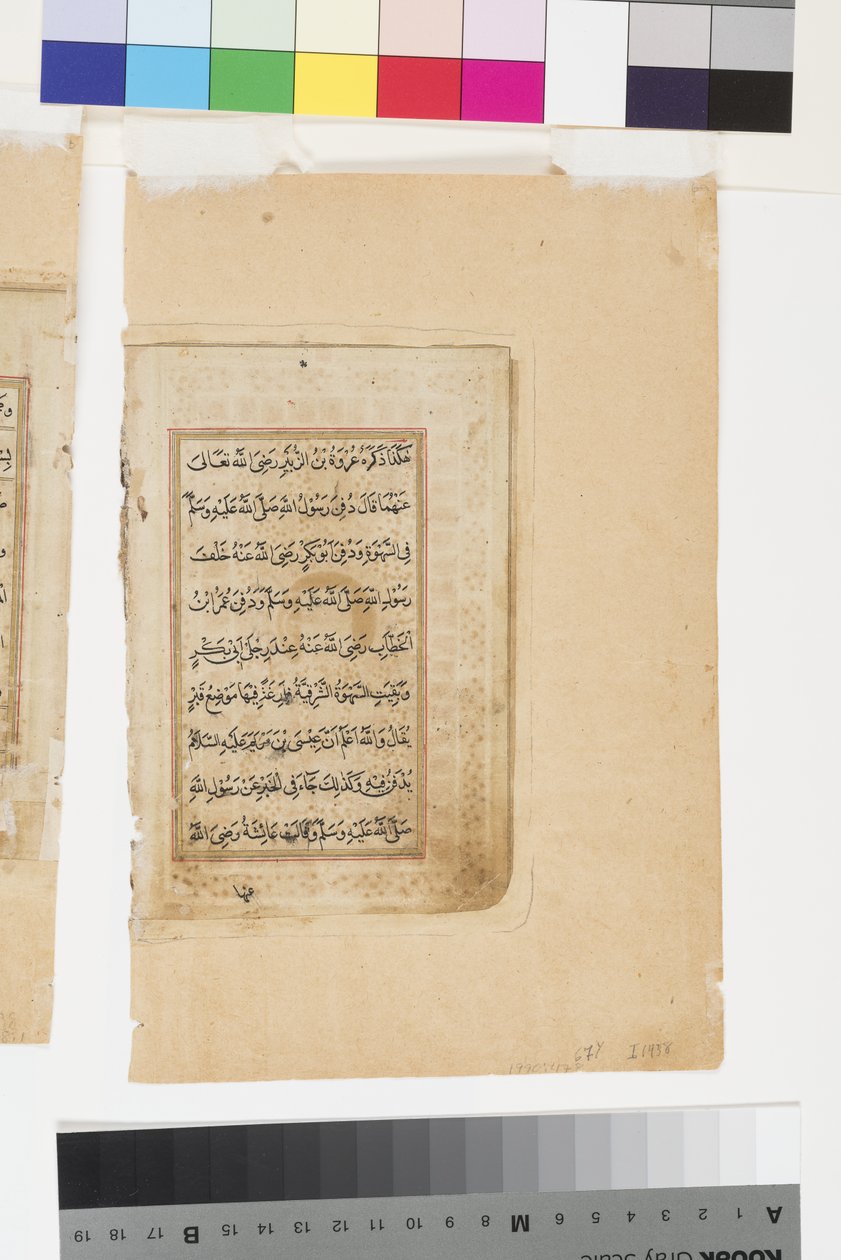 هٰكَذَا ذَكَرَهُ عُرْوَةُ بْنُ الزُّبَيْرِ رَضِيَ اللّٰهُ تَعَالَى
عَنْهُمَا قَالَ دُفِنَ رَسُوْلُ اللّٰهِ صَلَّى اللّٰهُ عَلَيْهِ وَسَلَّمَ
فِي السَّهْوَةِ وَدُفِنَ اَبُوْبَكْرٍ رَضِيَ اللّٰهُ عَنْهُ خَلْفَ
رَسُوْلِ اللّٰهِ صَلَّى اللّٰهُ عَلَيْهِ وَسَلَّمَ وَدُفِنَ عُمَرُ ابْنُ
الْخَطَّابِ رَضِيَ اللّٰهُ عَنْهُ عِنْدَ رِجْلَيْ اَبِيْ بَكْرٍ
وَبَقِيَتِ السَّهْوَةُ الشَّرْقِيَّةُ فَارِغَةً فِيْهَا مَوْضِعُ قَبْرٍ
يُقَالُ وَاللّٰهُ اَعْلَمُ اَنَّ عِيْسَى بْنَ مَرْيَمَ عَلَيْهِ السَّلَامُ
يُدْفَنُ فِيْهِ وَكَذٰلِكَ جَآءَ فِي الْخَبَرِ عَنْ رَسُوْلِ اللّٰهِ
صَلَّى اللّٰهُ عَلَيْهِ وَسَلَّمَ وَقَالَتْ عَائِشَةُ رَضِيَ اللّٰهُ
عنها
67Y I 1438
A 1 2 3 4 5 6 M 8 9 10 11 12 13 14 15 B 17 18 19
KODAK Gray Scale